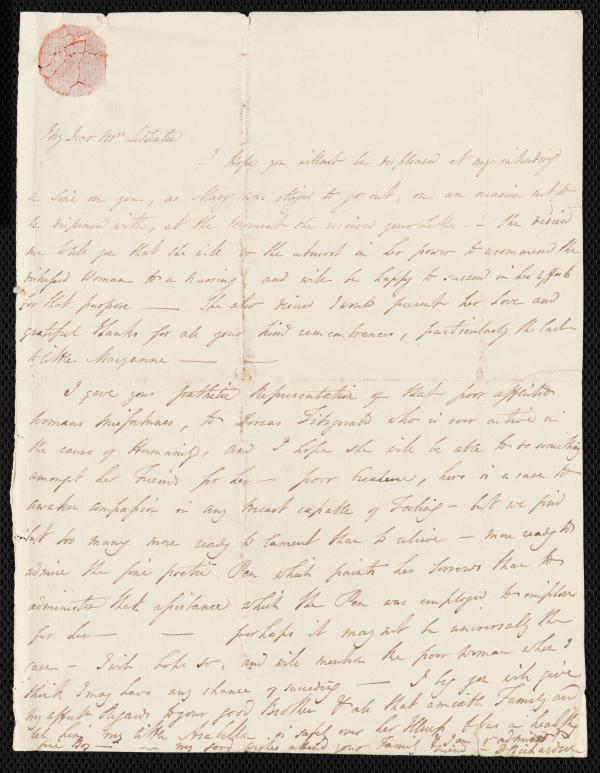 My Dear Mrs. Leadbeater
I hope you will not be displeased at my intruding
a line on you, as Mary was obliged to go out, on an occasion not to
be dispensed with, at the moment she received your letter — She desired
me tell you that she will do the utmost in her power to recommend the
distressed Woman to a nursing and will be happy to succeed in her efforts
for that purpose — She also desired I would present her Love and
grateful thanks for all your kind remembrances, particularly the last
to little Maryanne — —
I gave your pathetic Representation of that poor afflicted
womans misfortunes, to Dorcas Fitzgerald who is ever active in
the cause of Humanity, and I hope she will be able to do something
amongst her Friends for her — poor Creature, hers is a case to
awaken compassion in any breast capable of Feeling — but we find
but too many more ready to lament than to relieve — more ready to
admire the fine poetic Pen which paints her Sorrows than to
administer that assistance which the Pen was employed to implore
for her — — perhaps it may not be universally the
case — I will hope so, and will mention the poor woman when I
think I may have any chance of succeeding — I beg you will give
my affect. Regards to your good Brother & all that amiable Family and
tell him my little Arabella is safely over her Illness & has a healthy
fine Boy — my good wishes attend your Family I am yr. admiring
Friend D Richardson